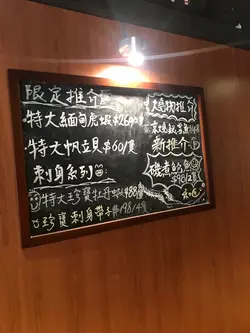 限定推介
特大緬甸虎蝦$260/隻
特大帆立貝 $60/隻
刺身系列
特大珍寶牡丹蝦$88/隻
珍寶刺身帶子$198/4隻
火燒物推介
新推介
磯煮的
$98/2隻